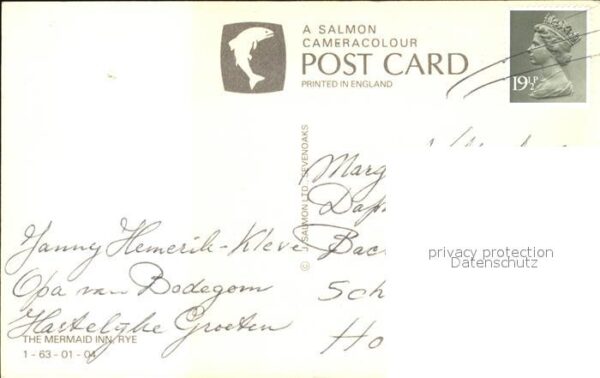 A SALMON
CAMERACOLOUR
POST CARD
PRINTED IN ENGLAND
19½P
© J. SALMON LTD., SEVENOAKS
Marg
Dap
Bac
Sch
Ho
Janny Hemerik-Kleve
Opa van Bodegom
Hartelijke Groeten
THE MERMAID INN, RYE
1-63-01-04
privacy protection
Datenschutz